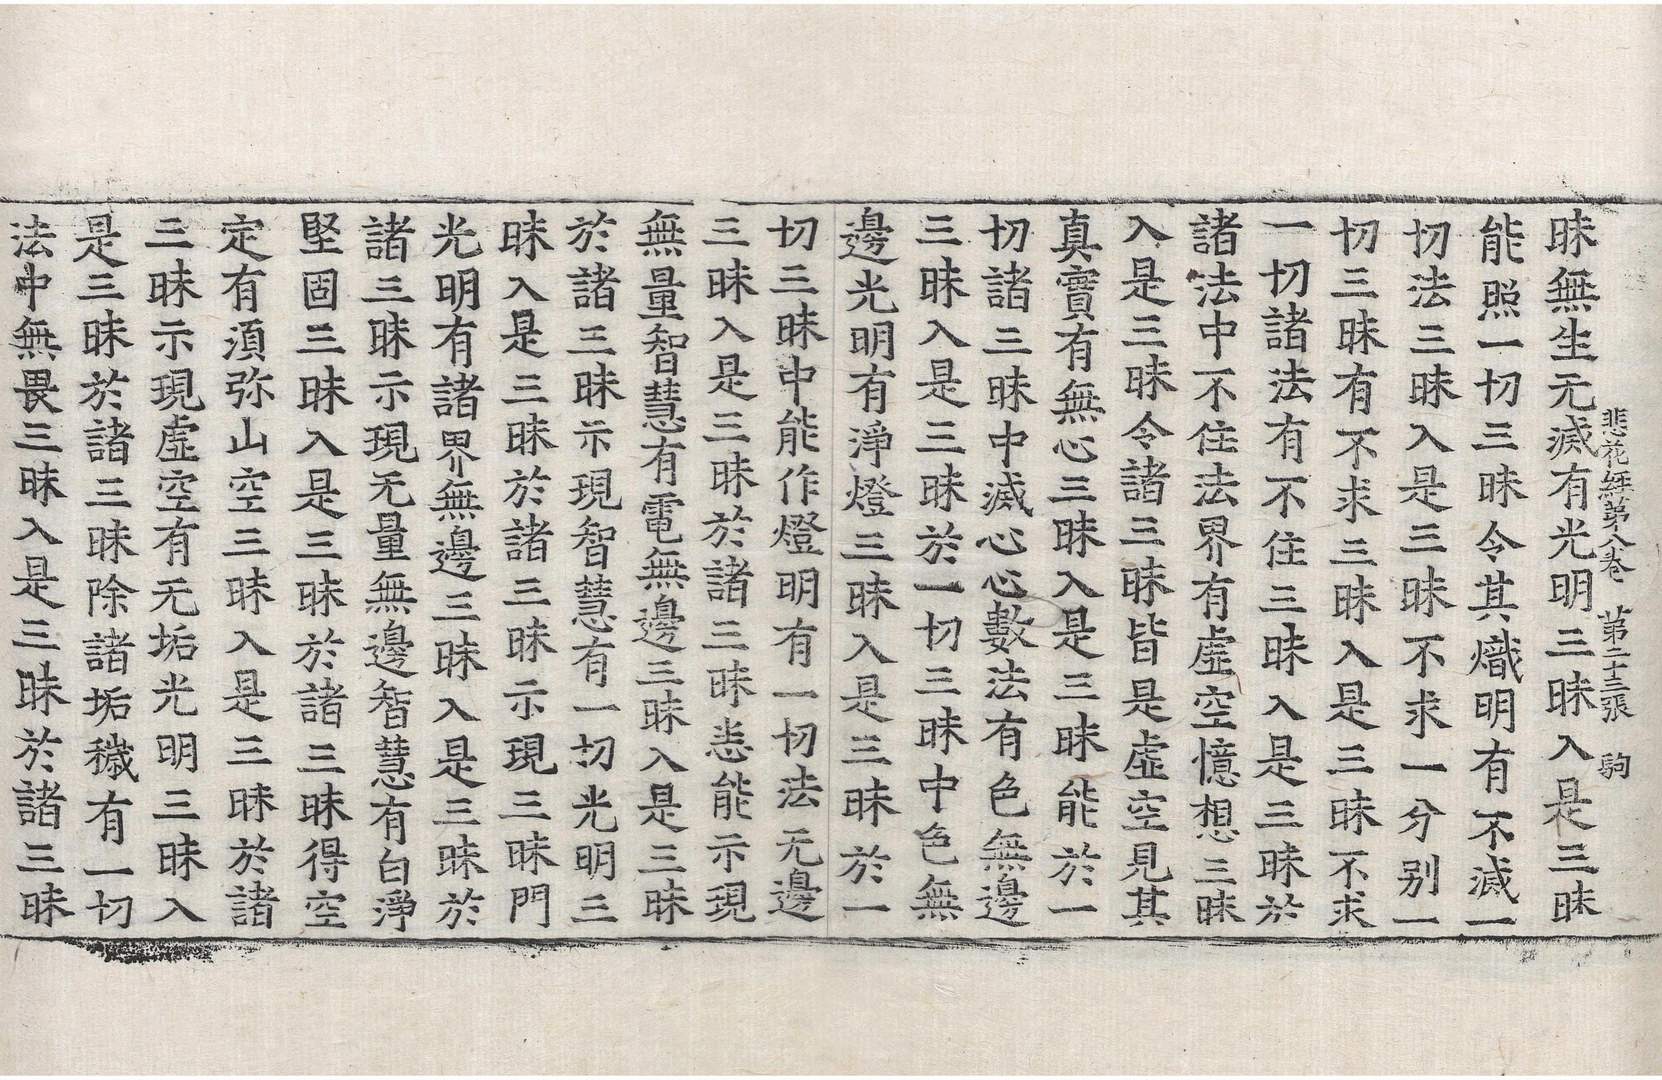 悲花經第八卷 第二十三張 駒
昧無生无滅有光明三昧入是三昧
能照一切三昧令其熾明有不滅一
切法三昧入是三昧不求一分别一
切三昧有不求三昧入是三昧不求
一切諸法有不住三昧入是三昧於
諸法中不住法界有虛空憶想三昧
入是三昧令諸三昧皆是虛空見其
真實有無心三昧入是三昧能於一
切諸三昧中滅心心數法有色無邊
三昧入是三昧於一切三昧中色無
邊光明有淨燈三昧入是三昧於一
切三昧中能作燈明有一切法无邊
三昧入是三昧於諸三昧悉能示現
無量智慧有電無邊三昧入是三昧
於諸三昧示現智慧有一切光明三
昧入是三昧於諸三昧示現三昧門
光明有諸界無邊三昧入是三昧於
諸三昧示現无量無邊智慧有白淨
堅固三昧入是三昧於諸三昧得空
定有須弥山空三昧入是三昧於諸
三昧示現虛空有无垢光明三昧入
是三昧於諸三昧除諸垢穢有一切
法中無畏三昧入是三昧於諸三昧